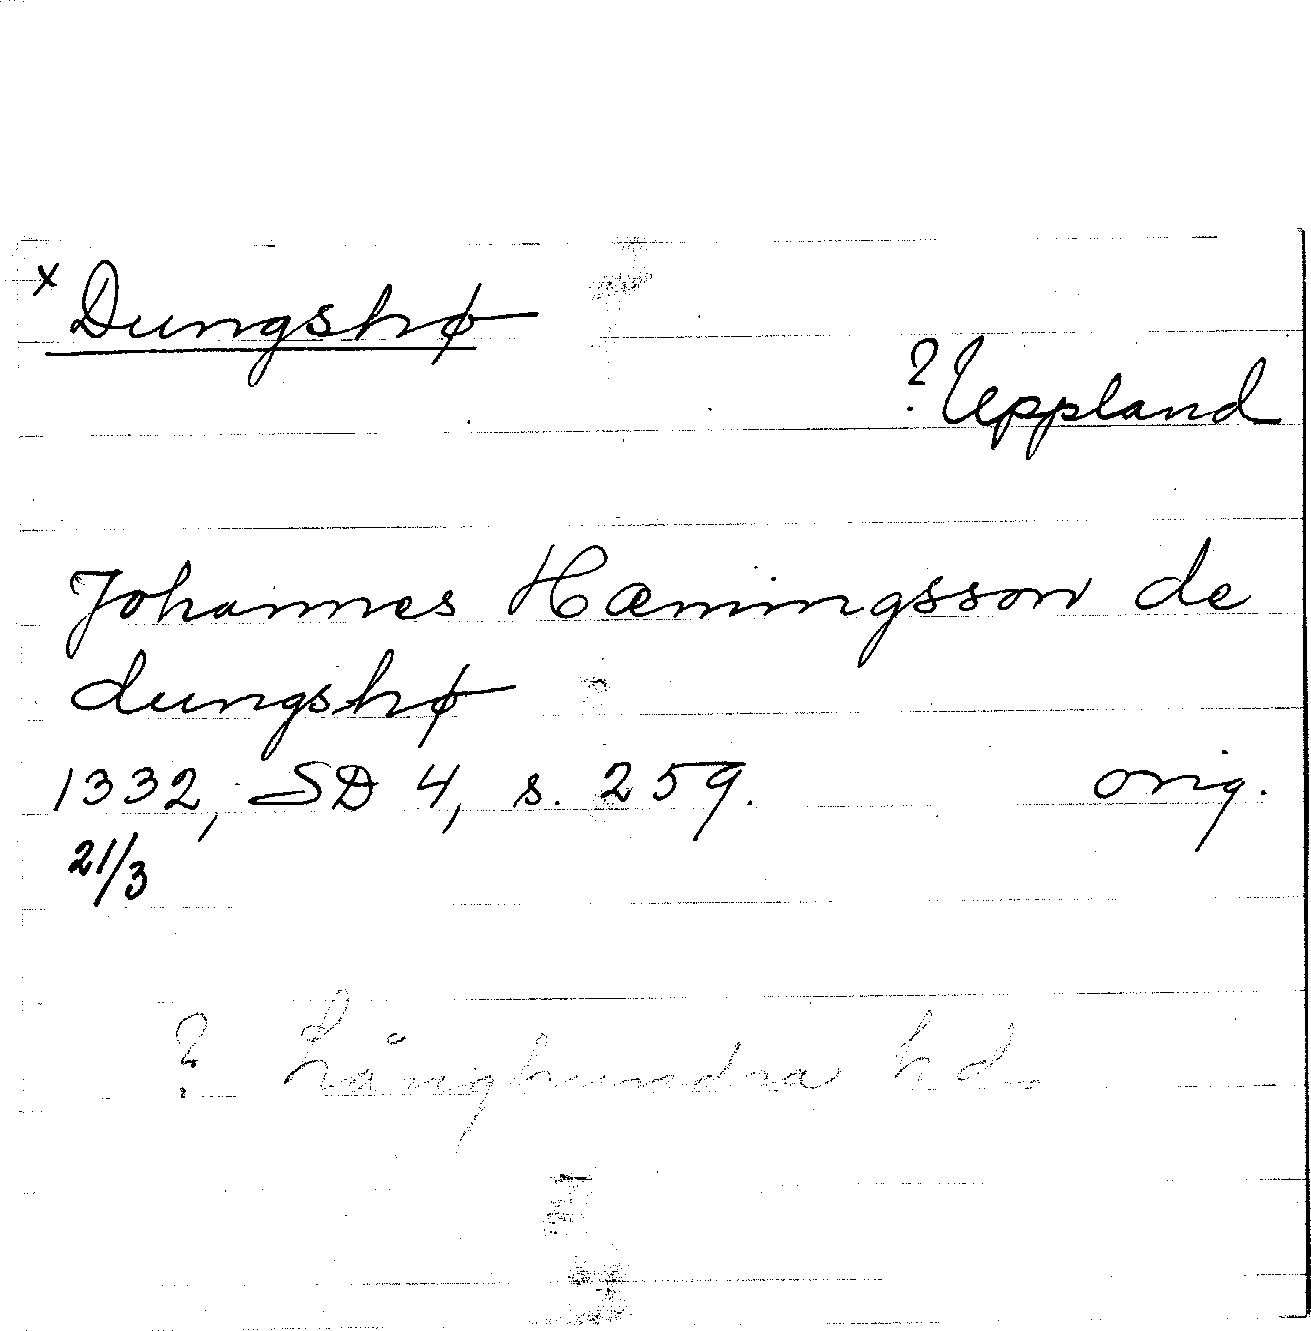 x Dungshø
? Uppland
Johannes Hæmingsson de
dungshø
1332, SD 4, s. 259. orig.
21/3
? Långhundra hd.